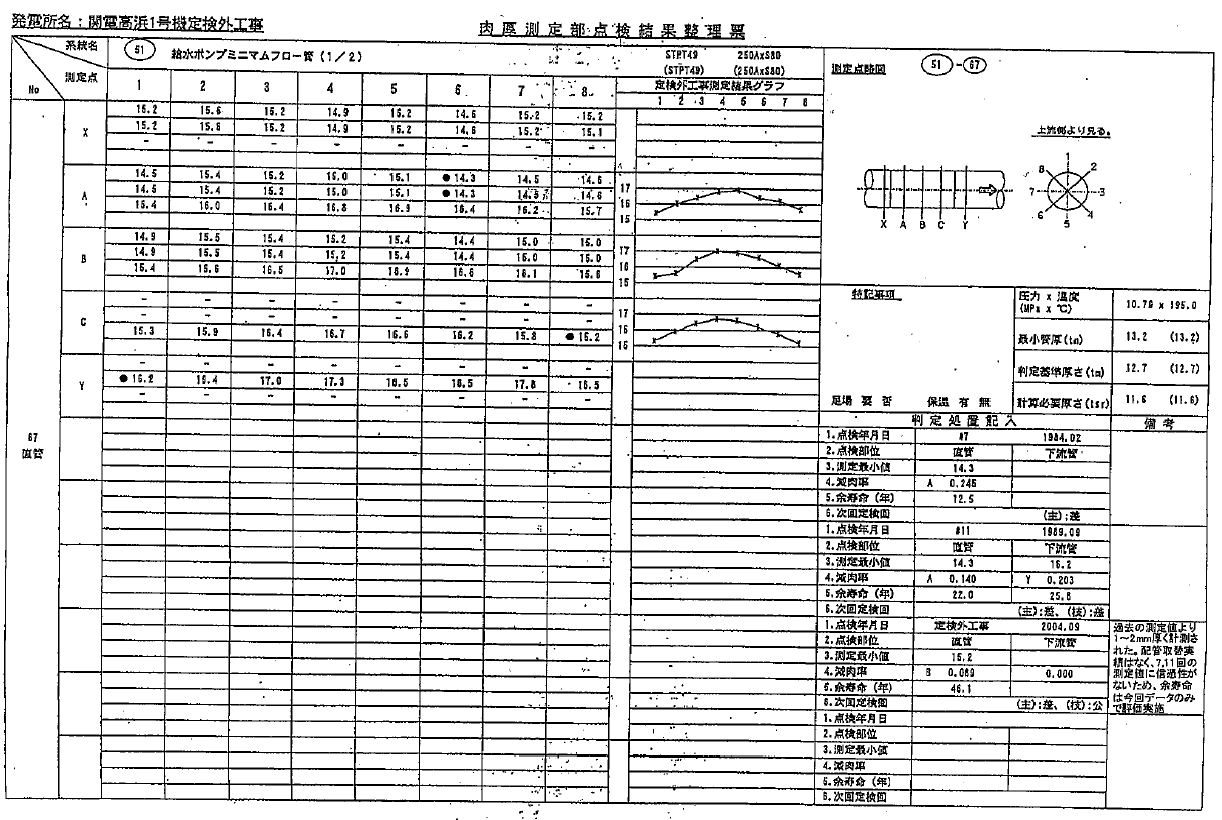 発電所名：関電高浜1号機定検外工事
肉厚測定部点検結果整理票
系統名 51 給水ポンプミニマムフロー管（1／2）
STPT49 250AxS80
(STPT49) (250AxS80)
測定点
No
1 2 3 4 5 6 7 8
定検外工事測定結果グラフ
1 2 3 4 5 6 7 8
67
直管
X
15.2 15.6 15.2 14.9 15.2 14.6 15.2 15.2
15.2 15.6 15.2 14.9 15.2 14.6 15.2 15.1
- - - - - - - -
A
14.5 15.4 15.2 15.0 15.1 ●14.3 14.5 14.6
14.5 15.4 15.2 15.0 15.1 ●14.3 14.5 14.6
15.4 16.0 16.4 16.8 16.9 16.4 16.2 15.7
17
16
15
B
14.9 15.5 15.4 15.2 15.4 14.4 15.0 15.0
14.9 15.5 15.4 15.2 15.4 14.4 15.0 15.0
15.4 15.6 16.5 17.0 16.9 16.6 16.1 15.6
17
16
15
C
- - - - - - - -
- - - - - - - -
15.3 15.9 16.4 16.7 16.6 16.2 15.8 ●15.2
17
16
15
Y
- - - - - - - -
●16.2 16.4 17.0 17.3 16.5 16.5 17.8 16.5
- - - - - - - -
測定点略図 51－67
上流側より見る。
1 2 3 4 5 6 7 8
X A B C Y
特記事項
足場 要 否 保温 有 無
圧力 x 温度
(MPa x ℃)
10.79 x 195.0
最小管厚(tm) 13.2 (13.2)
判定基準厚さ(tm) 12.7 (12.7)
計算必要厚さ(tsr) 11.6 (11.6)
判定処置記入
備考
1.点検年月日 #7 1984.02
2.点検部位 直管 下流管
3.測定最小値 14.3
4.減肉率 A 0.246
5.余寿命（年） 12.5
6.次回定検回 (主):差
1.点検年月日 #11 1989.09
2.点検部位 直管 下流管
3.測定最小値 14.3 16.2
4.減肉率 A 0.140 Y 0.203
5.余寿命（年） 22.0 25.6
6.次回定検回 (主):差、(枝):差
1.点検年月日 定検外工事 2004.09
2.点検部位 直管 下流管
3.測定最小値 15.2
4.減肉率 B 0.089 0.000
5.余寿命（年） 46.1
6.次回定検回 (主):差、(枝):公
過去の測定値より
1～2mm厚く計測さ
れた。配管取替実
績はなく、7,11回の
測定値に信憑性が
ないため、余寿命
は今回データのみ
で評価実施
1.点検年月日
2.点検部位
3.測定最小値
4.減肉率
5.余寿命（年）
6.次回定検回